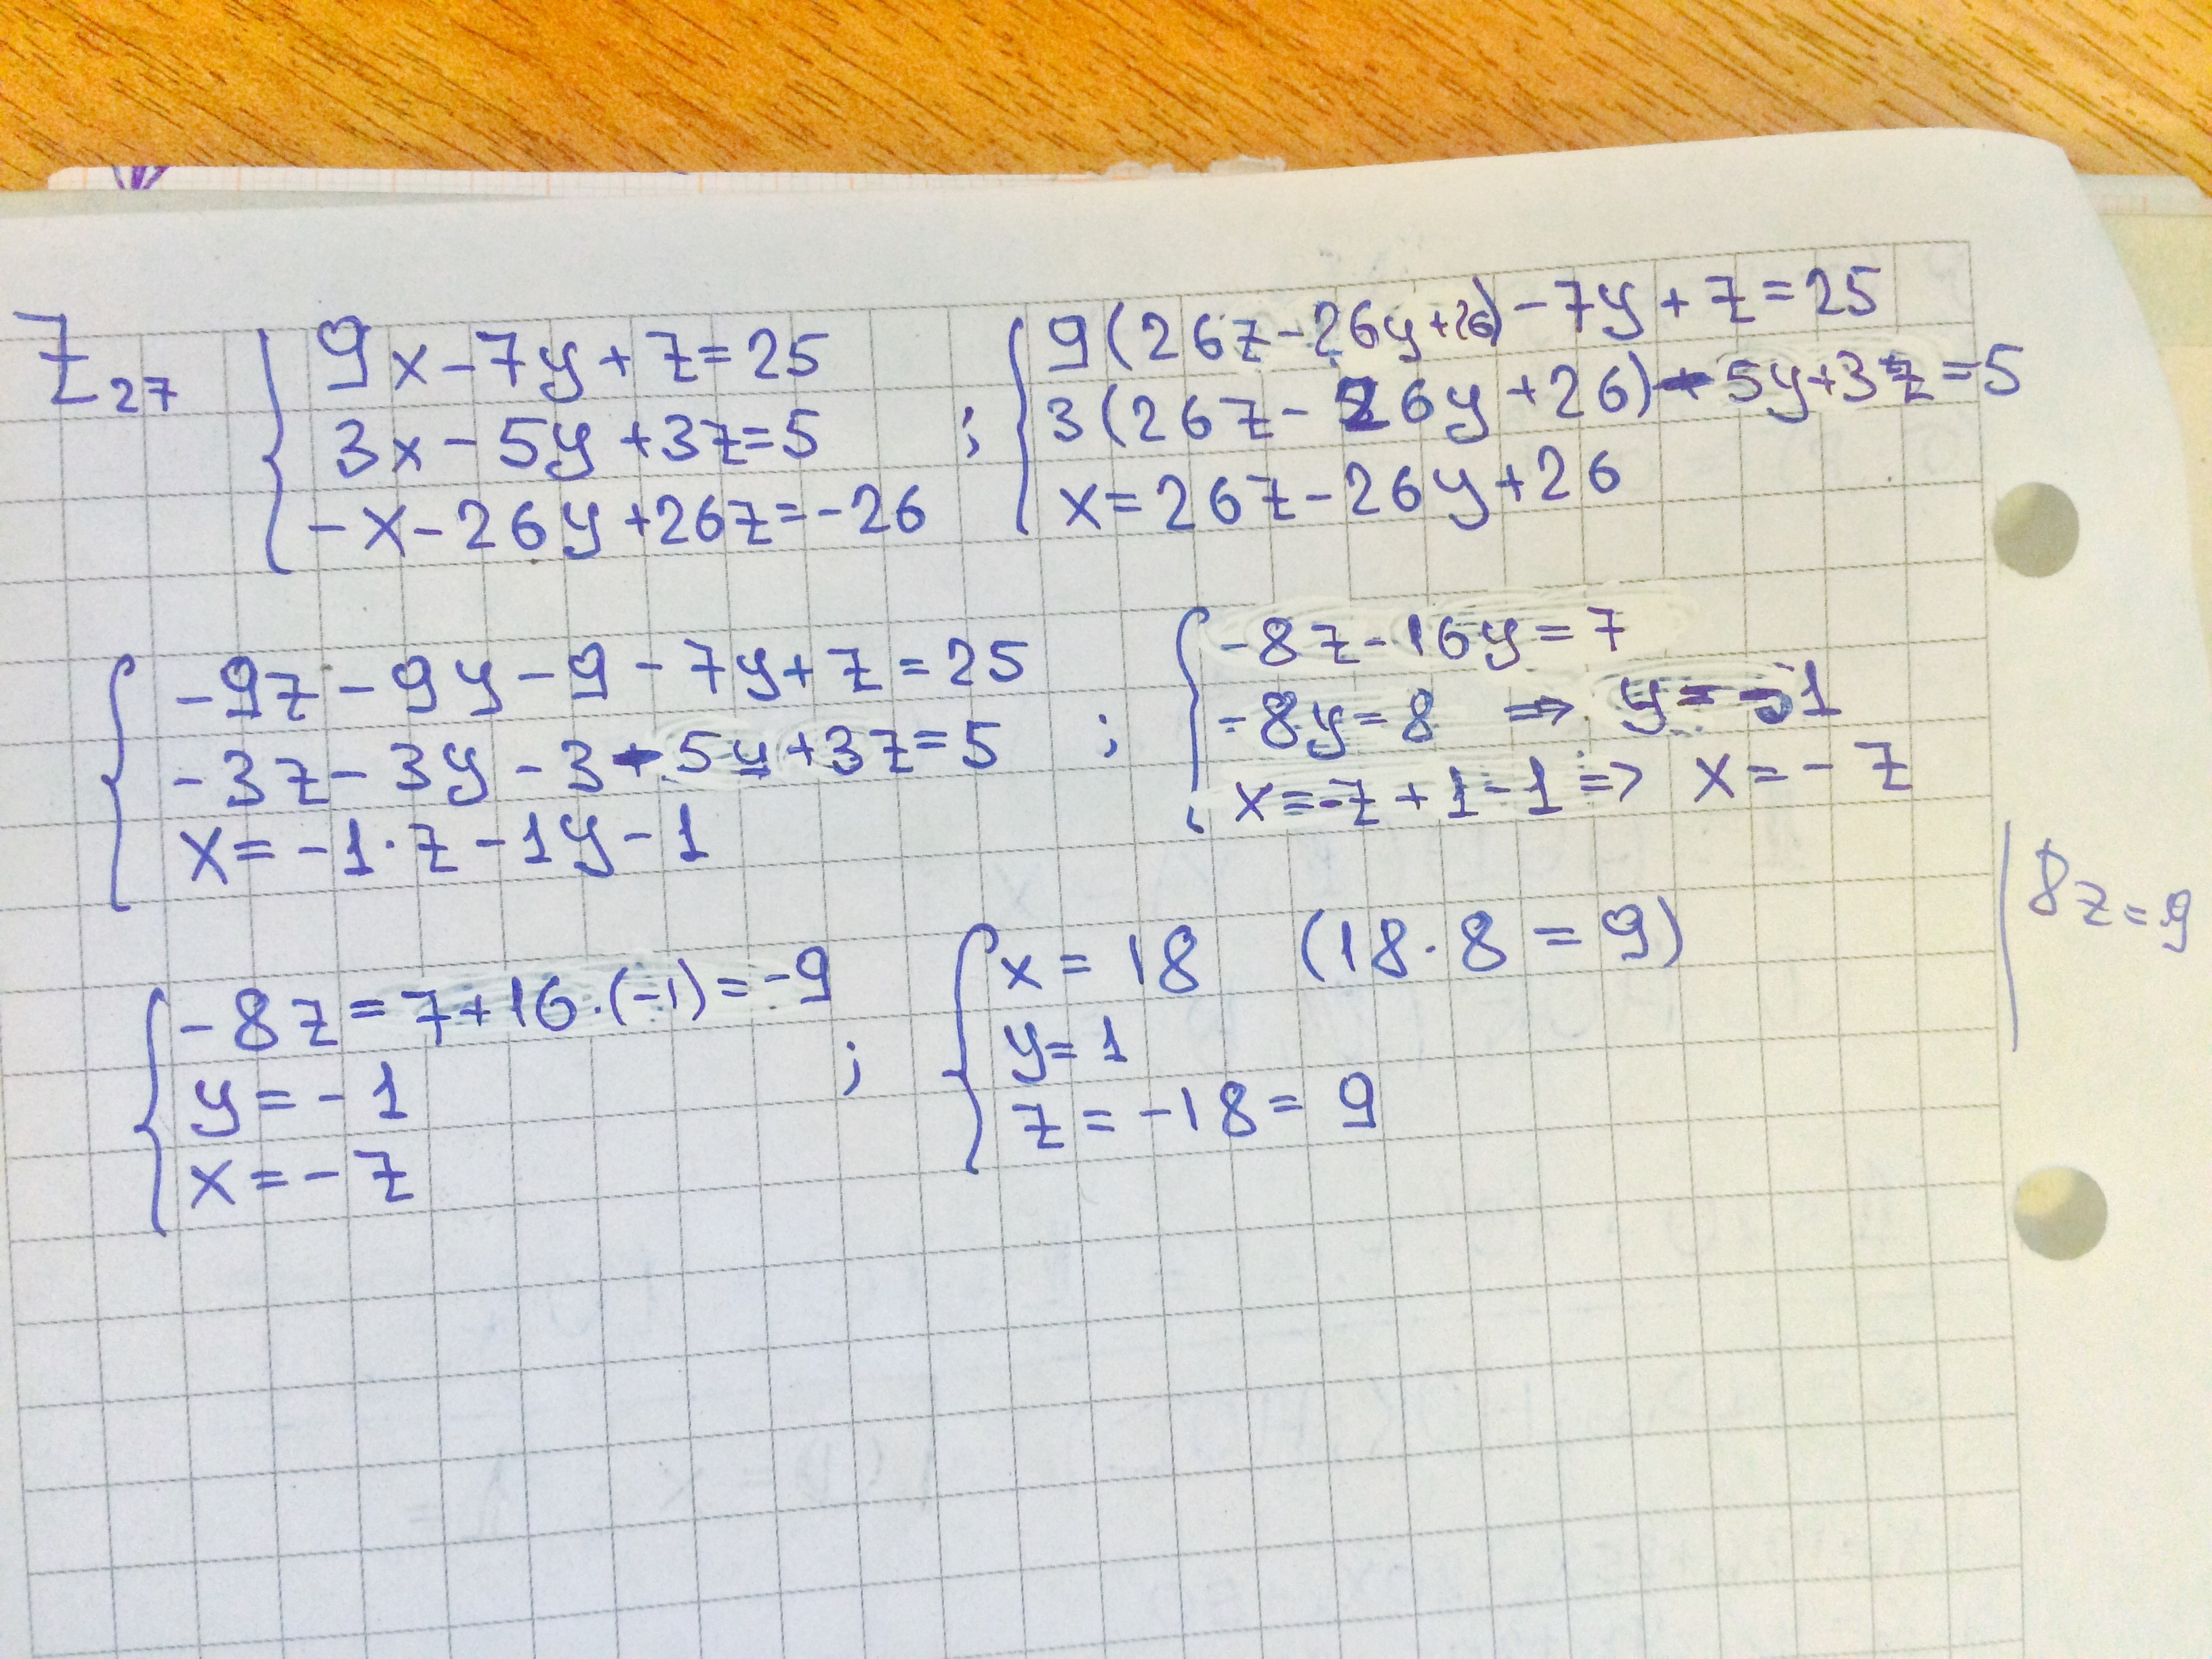 Z₂₇
9x - 7y + z = 25
3x - 5y + 3z = 5
-x - 26y + 26z = -26
;
9(26z - 26y + 26) - 7y + z = 25
3(26z - 26y + 26) - 5y + 3z = 5
x = 26z - 26y + 26
-9z - 9y - 9 - 7y + z = 25
-3z - 3y - 3 - 5y + 3z = 5
x = -1·z - 1y - 1
;
-8z - 16y = 7
-8y = 8 ⇒ y = -1
x = -z + 1 - 1 ⇒ x = -z
8z = 9
-8z = 7 + 16·(-1) = -9
y = -1
x = -z
;
x = 18 (18·8 = 9)
y = 1
z = -18 = 9